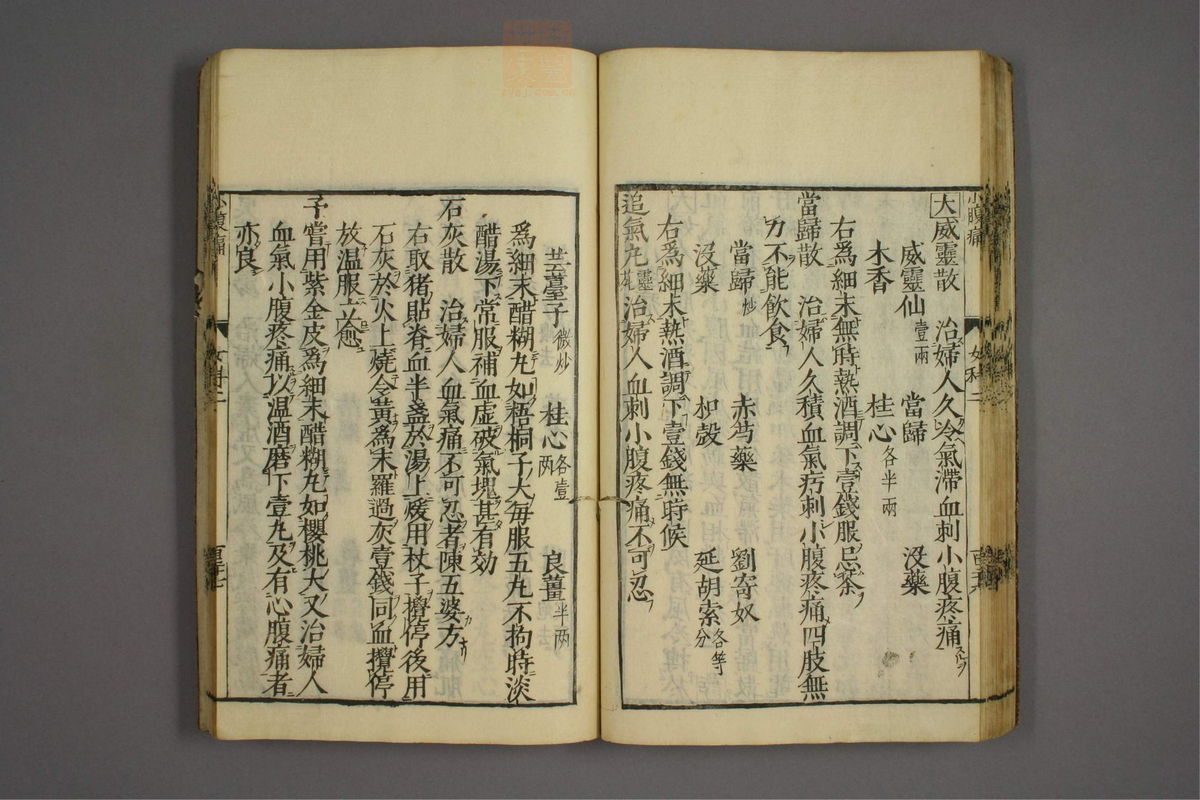 小腹痛
女科二
大威靈散　治婦人久冷氣滯血刺小腹疼痛
威靈仙壹兩　當歸　沒藥
木香　桂心各半兩
右爲細末無時熱酒調下壹錢服忌茶
當歸散　治婦人久積血氣疞刺小腹疼痛四肢無
力不能飲食
當歸炒　赤芍藥　劉寄奴
沒藥　枳殼　延胡索各等分
右爲細末熱酒調下壹錢無時候
追氣丸　治婦人血刺小腹疼痛不可忍
芸薹子微炒　桂心各壹兩　良薑半兩
爲細末醋糊丸如梧桐子大每服五丸不拘時淡
醋湯下常服補血虛破氣塊甚有効
石灰散　治婦人血氣痛不可忍者陳五婆方
右取猪貼脊血半盞於湯上煖用杖子攪停後用
石灰於火上燒令黃爲末羅過灰壹錢同血攪停
放溫服立愈
予嘗用紫金皮爲細末醋糊丸如櫻桃大又治婦人
血氣小腹疼痛以溫酒磨下壹丸及有心腹痛者
亦良
小腹痛
女科二